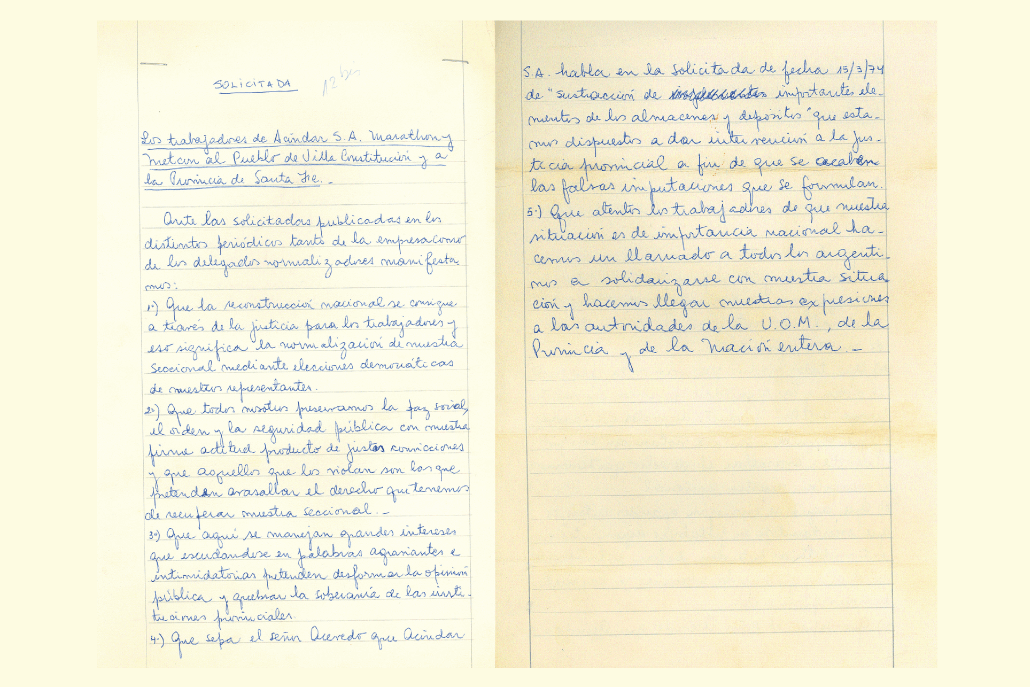 SOLICITADA
12 bis
Los trabajadores de Acindar S.A. Marathon y
Metcon al Pueblo de Villa Constitución y a
la Provincia de Santa Fe. -
Ante las solicitadas publicadas en los
distintos periódicos tanto de la empresa como
de los delegados normalizadores manifesta
mos:
1º) Que la reconstruccion nacional se consigue
a través de la justicia para los trabajadores y
eso significa la normalización de nuestra
seccional mediante elecciones democráticas
de nuestros representantes.
2º) Que todos nosotros preservamos la paz social,
el orden y la seguridad pública con nuestra
firme actitud producto de justas convicciones
y que aquellos que los violan son los que
pretenden avasallar el derecho que tenemos
de recuperar nuestra seccional. -
3º) Que aquí se manejan grandes intereses
que escudandose en palabras agraviantes e
intimidatorias pretenden desformar la opinión
pública y quebrar la soberanía de las insti-
tuciones provinciales.
4º) Que sepa el señor Acevedo que Acindar
S.A. habla en la solicitada de fecha 15/3/74
de "sustracción de importantes ele-
mentos de los almacenes y depósitos" que esta-
mos dispuestos a dar intervencion a la jus-
ticia provincial a fin de que se acaben
las falsas imputaciones que se formulan.
5º) Que atentos los trabajadores de que nuestra
situación es de importancia nacional ha-
cemos un llamado a todos los argenti-
nos a solidarizarse con nuestra situa
ción y hacemos llegar nuestras expresiones
a las autoridades de la U.O.M., de la
Provincia y de la Nación entera. -